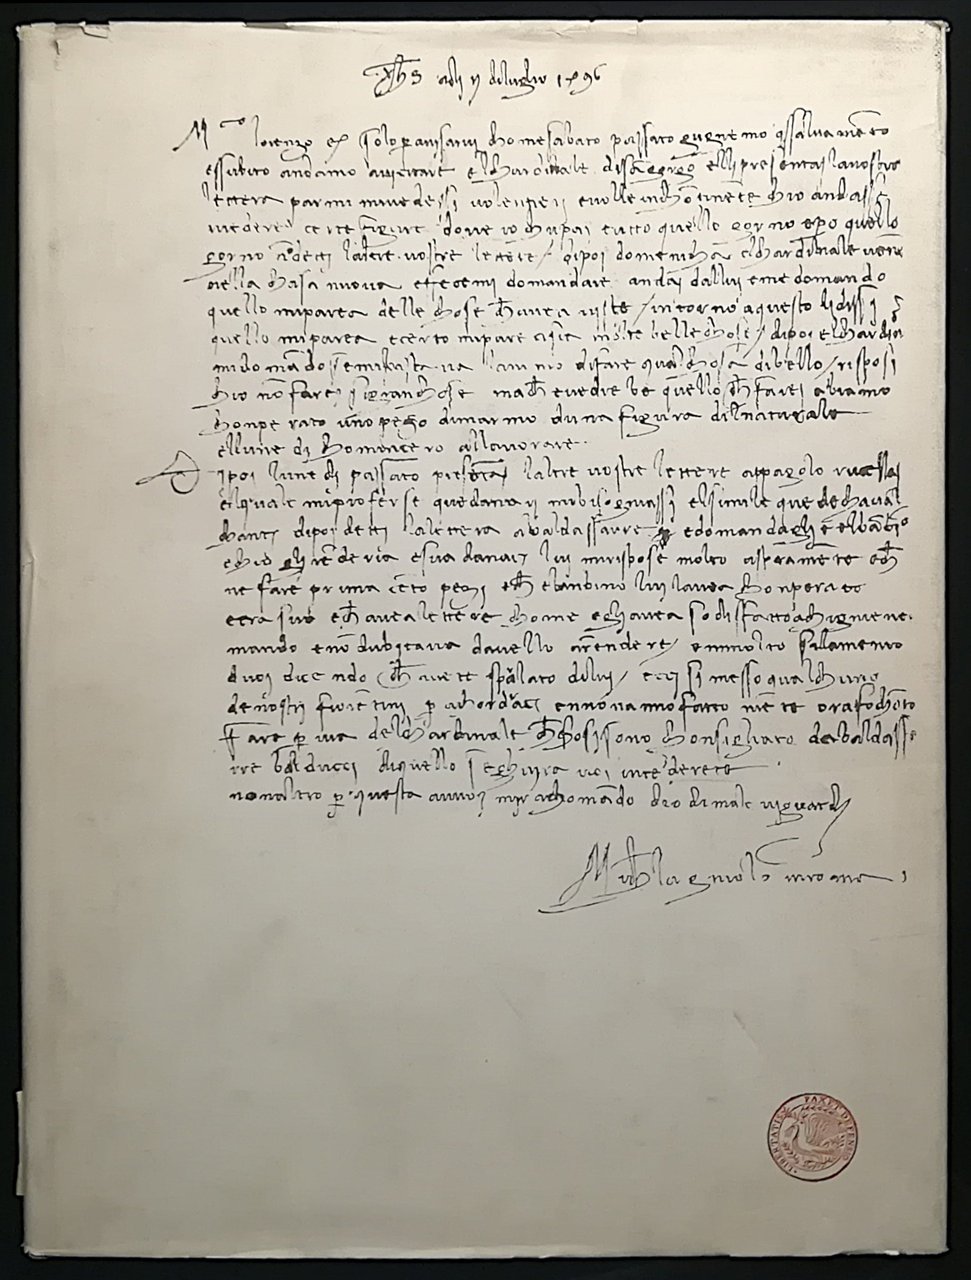 Xh̅s adi ij diluglio 1496
Mco lorenzo ec solo per avisarvi chome sabato passato gugnemo assalvamento
essubito andamo avicitare elchardinale disangorgo elli presentai lavostra
lettera parmi mivedessi volentieri evolle inchontinente chio andassi
vedere certe figure dove io chupai tutto quello gorno epero quello
gorno nō detti laltre vostre lettere / dipoi domenicha elchardinale venne
nella chasa nuova effecemi domandare andai dallui eme domando
quello miparea delle chose chavea viste / intorno aquesto lidissi
quello miparea ecerto mipare cisia molte belle chose / dipoi elchardinale
midomādo semibastava lanimo difare qualchosa dibello / risposi
chio nō farei sigranchose mache evedrebe quello che farei abiamo
chonperato uno pezo dimarmo duna figura delnaturale
ellunedi chomincero allavorare
Dipoi lunedi passato presentai laltre vostre lettere appagolo rucellai
elquale miproferse quedanari mibisognassi elsimile que dechaval
chanti dipoi detti lalettera abaldassarre edomandagli elbābino
chio gli rēderia esua danari lui mirispose molto aspramēte ech
ne fare prima cēto pezi ech elbambino lui lavea chonperato
eera suo echavea lettere chome egliavea sodisfatto achigniene
mando enō dubitava davello arēndere / emmolto silamento
divoi dicendo chavete sparlato dilui / ecci si messo qualchuno
denostri fiorentini per achordarci ennōvanno fatto niēte ora fo chōto
fare per via delchardinale checosi sono chonsigliato dabaldass
rre balducci diquello seghuira voi intēderete
nonaltro per questa avvoi mi rachomādo dio dimale viguardi
Michelagniolo inroma
LIBERTATIS PAXET DEFENSIO